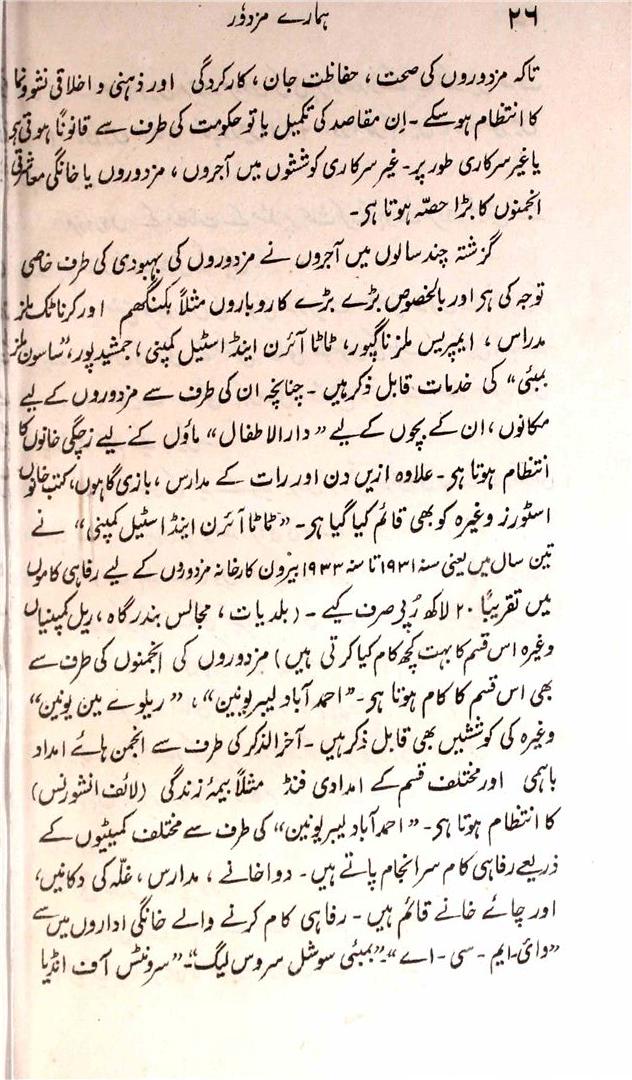 ۲۶
ہمارے مزدور
تاکہ مزدوروں کی صحت ، حفاظت جان ، کارکردگی اور ذہنی و اخلاقی نشوونما
کا انتظام ہوسکے ۔ اِن مقاصد کی تکمیل یا تو حکومت کی طرف سے قانوناً ہوتی ہی
یا غیر سرکاری طور پر۔ غیر سرکاری کوششوں میں آجروں ، مزدوروں یا خانگی معاشرتی
انجمنوں کا بڑا حصّہ ہوتا ہی۔
گزشتہ چند سالوں میں آجروں نے مزدوروں کی بہبودی کی طرف خاصی
توجہ کی ہی اور بالخصوص بڑے بڑے کاروباروں مثلاً بکنگھم اور کرناٹک ملز
مدراس ، ایمپریس ملز ناگپور، ٹاٹا آئرن اینڈ اسٹیل کمپنی ، جمشید پور، ”ساسون ملز
بمبئی“ کی خدمات قابل ذکر ہیں ۔ چنانچہ ان کی طرف سے مزدوروں کے لیے
مکانوں ، ان کے بچوں کے لیے ”دارالاطفال“ ماؤں کے لیے زچگی خانوں کا
انتظام ہوتا ہی ۔ علاوہ ازیں دن اور رات کے مدارس ، بازی گاہوں، کتب خانوں
اسٹورز وغیرہ کو بھی قائم کیا گیا ہی ۔ ”ٹاٹا آئرن اینڈ اسٹیل کمپنی“ نے
تین سال میں یعنی سنہ ۱۹۳۱ تا سنہ ۱۹۳۳ بیرون کارخانہ مزدوروں کے لیے رفاہی کاموں
میں تقریباً ۲۰ لاکھ رُپی صرف کیے ۔ (بلدیات ، مجالس بندرگاہ ، ریل کمپنیاں
وغیرہ اس قسم کا بہت کچھ کام کیا کرتی ہیں) مزدوروں کی انجمنوں کی طرف سے
بھی اس قسم کا کام ہوتا ہی۔ ”احمد آباد لیبر یونین“ ، ”ریلوے مین یونین“
وغیرہ کی کوششیں بھی قابل ذکر ہیں ۔ آخرالذکر کی طرف سے انجمن ہائے امداد
باہمی اور مختلف قسم کے امدادی فنڈ مثلاً بیمۂ زندگی (لائف انشورنس)
کا انتظام ہوتا ہی ۔ ”احمد آباد لیبر یونین“ کی طرف سے مختلف کمیٹیوں کے
ذریعے رفاہی کام سرانجام پاتے ہیں ۔ دواخانے ، مدارس ، غلّہ کی دکانیں،
اور چائے خانے قائم ہیں ۔ رفاہی کام کرنے والے خانگی اداروں میں سے
”وائی۔ ایم ۔ سی ۔ اے“۔ ”بمبئی سوشل سروس لیگ“۔ ”سرونٹس آف انڈیا